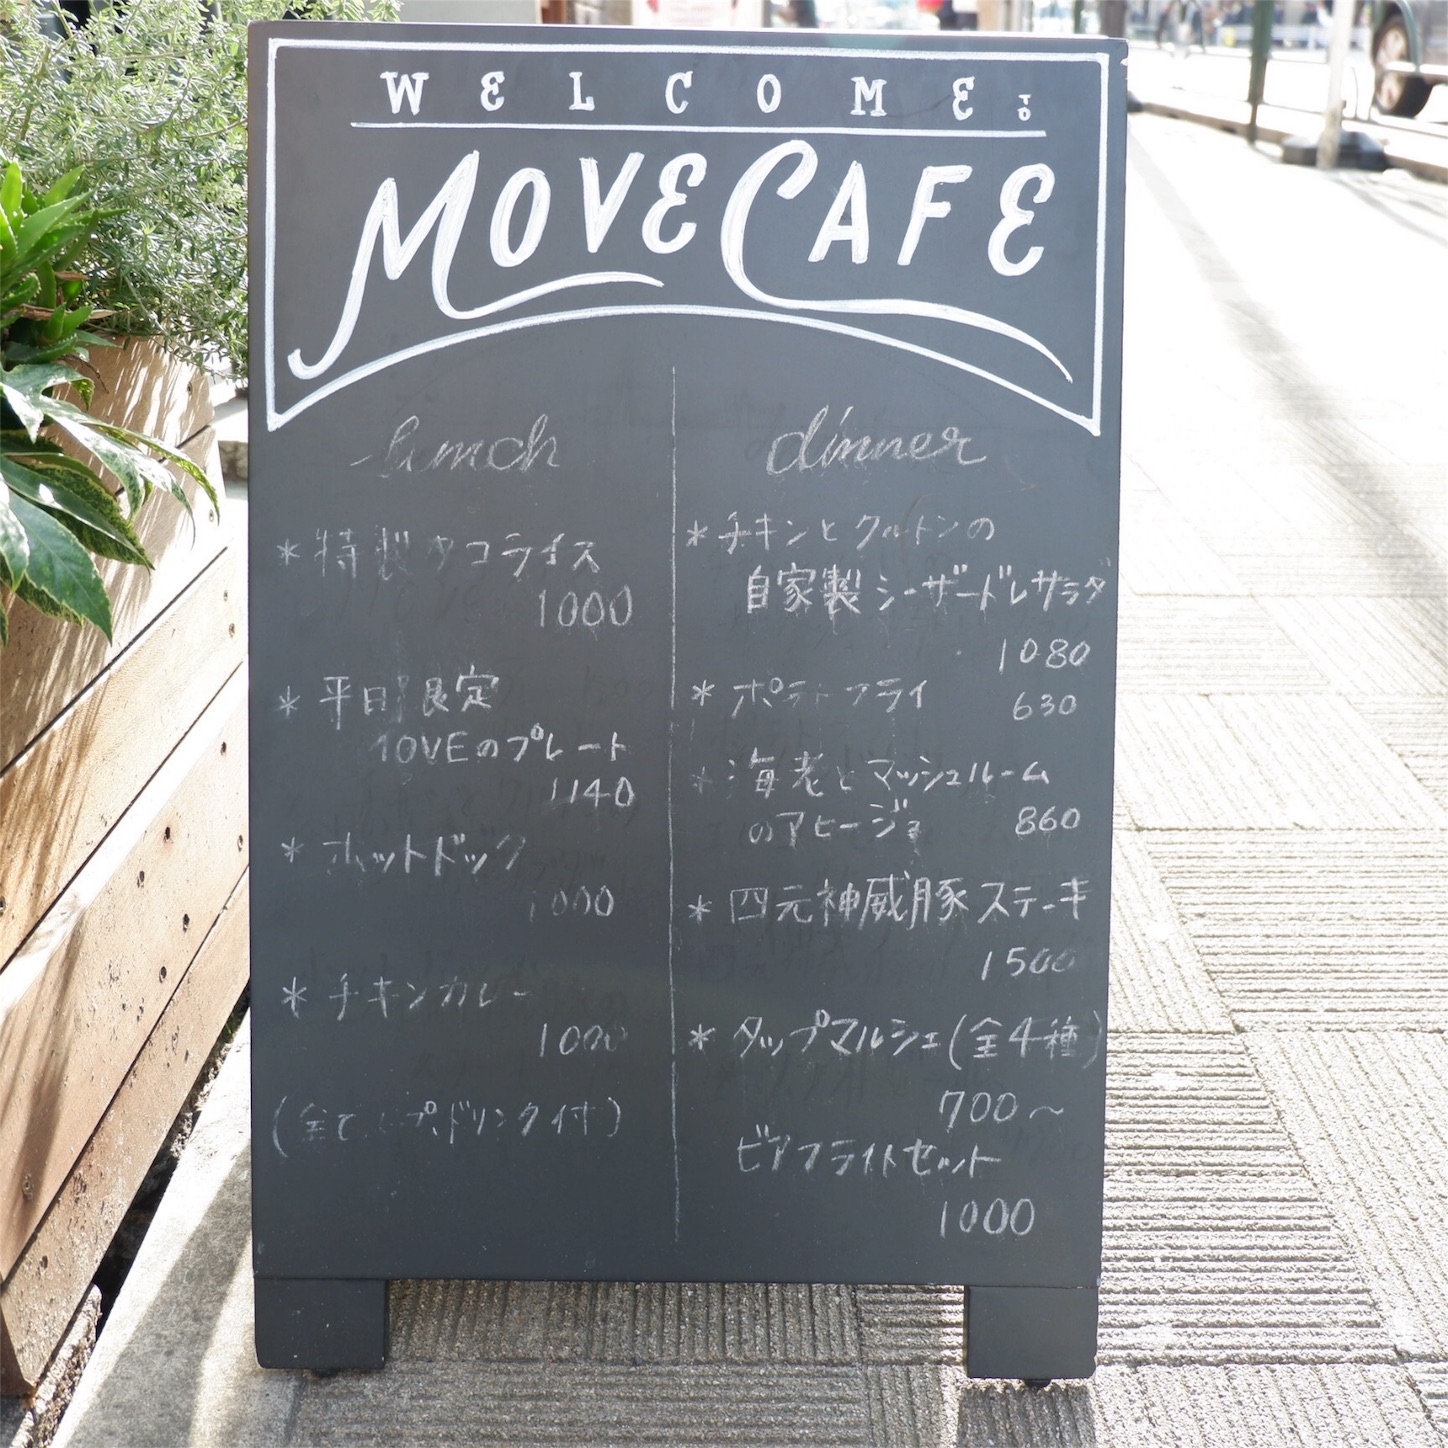 WELCOME TO
MOVE CAFE
lunch
*特製タコライス
1000
*平日限定
MOVEのプレート
1140
*ホットドック
1000
*チキンカレー
1000
(全て プ、ドリンク付)
dinner
*チキンとクルトンの
自家製シーザードレサラダ
1080
*ポテトフライ 630
*海老とマッシュルーム
のアヒージョ 860
*四元神威豚ステーキ
1500
*タップマルシェ(全4種)
700〜
ビアフライトセット
1000